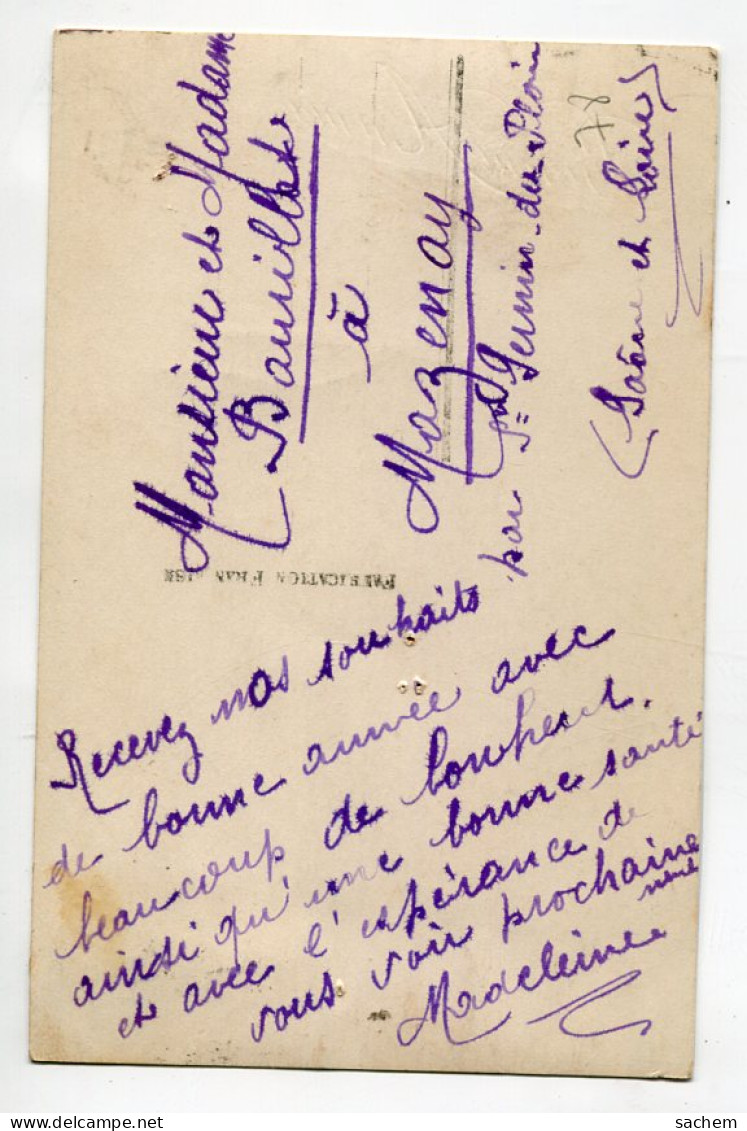 Monsieur et Madame
Bouillot
à
Mazenay
par St Sernin du Plain
(Saône et Loire)
78
FABRICATION FRANÇAISE
Recevez nos souhaits
de bonne année avec
beaucoup de bonheur.
ainsi qu'une bonne santé
et avec l'espérance de
vous voir prochaine
ment
Madeleine
sachem